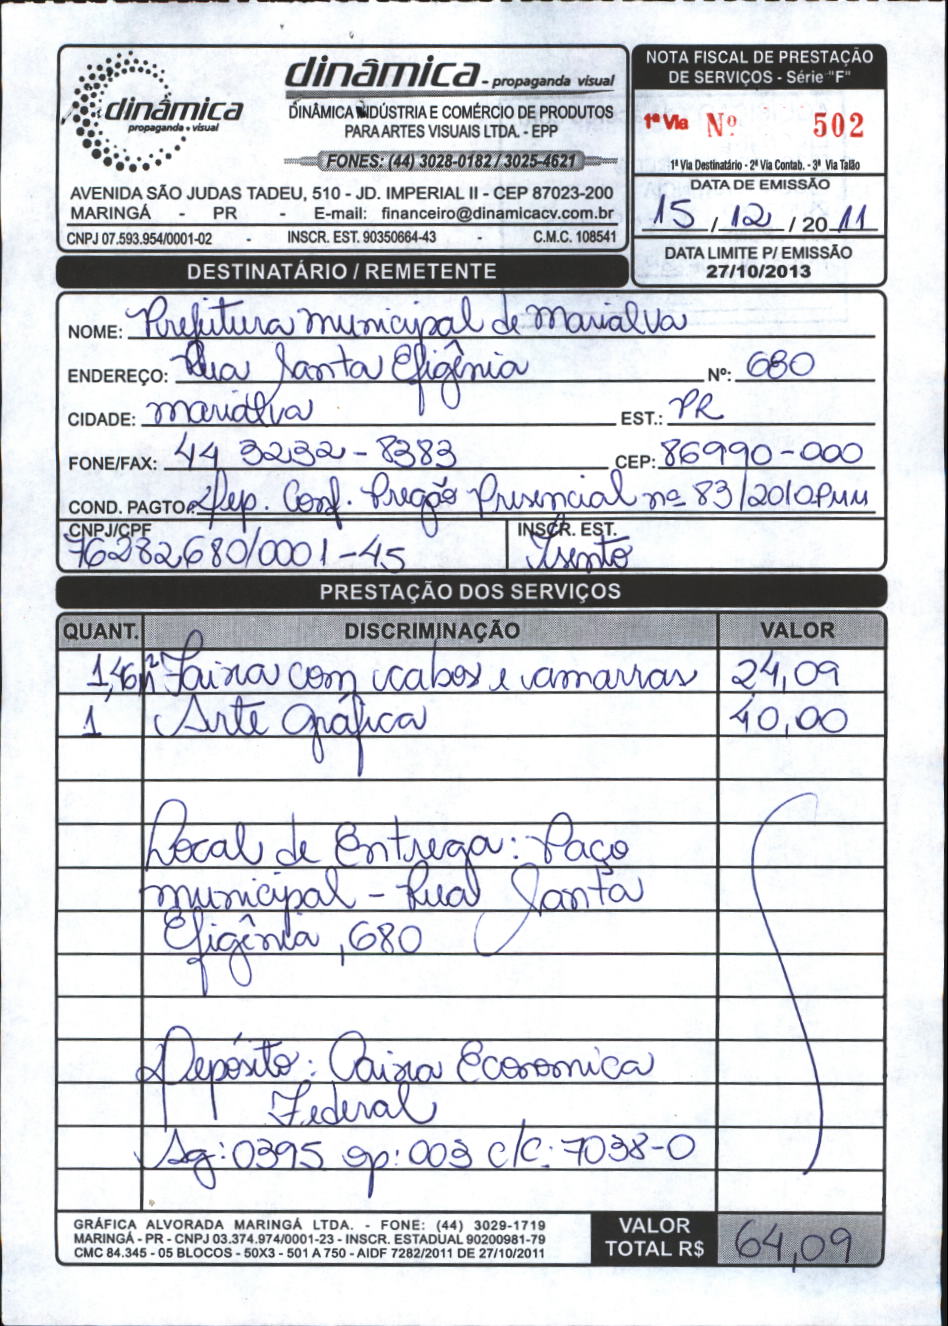 dinâmica
propaganda - visual
dinâmica - propaganda visual
DINÂMICA INDÚSTRIA E COMÉRCIO DE PRODUTOS
PARA ARTES VISUAIS LTDA. - EPP
FONES: (44) 3028-0182 / 3025-4621
AVENIDA SÃO JUDAS TADEU, 510 - JD. IMPERIAL II - CEP 87023-200
MARINGÁ - PR - E-mail: financeiro@dinamicacv.com.br
CNPJ 07.593.954/0001-02 - INSCR. EST. 90350664-43 - C.M.C. 108541
NOTA FISCAL DE PRESTAÇÃO
DE SERVIÇOS - Série "F"
1ª Via Nº 502
1ª Via Destinatário - 2ª Via Contab. - 3ª Via Talão
DATA DE EMISSÃO
15 / 12 / 2011
DATA LIMITE P/ EMISSÃO
27/10/2013
DESTINATÁRIO / REMETENTE
NOME: Prefeitura municipal de Marialva
ENDEREÇO: Rua Santa Efigênia Nº: 680
CIDADE: marialva EST.: PR
FONE/FAX: 44 3232-8383 CEP: 86990-000
COND. PAGTO: Dep. Conf. Pregão Presencial nº 83/2010PMM
CNPJ/CPF 76282680/0001-45 INSCR. EST. Isento
PRESTAÇÃO DOS SERVIÇOS
QUANT. DISCRIMINAÇÃO VALOR
1,46m² Faixa com cabos e amarras 24,09
1 Arte Gráfica 40,00
Local de Entrega: Paço
municipal - Rua Santa
Efigênia, 680
Depósito: Caixa Economica
Federal
Ag: 0395 op: 003 c/c: 7038-0
GRÁFICA ALVORADA MARINGÁ LTDA. - FONE: (44) 3029-1719
MARINGÁ - PR - CNPJ 03.374.974/0001-23 - INSCR. ESTADUAL 90200981-79
CMC 84.345 - 05 BLOCOS - 50X3 - 501 A 750 - AIDF 7282/2011 DE 27/10/2011
VALOR
TOTAL R$ 64,09